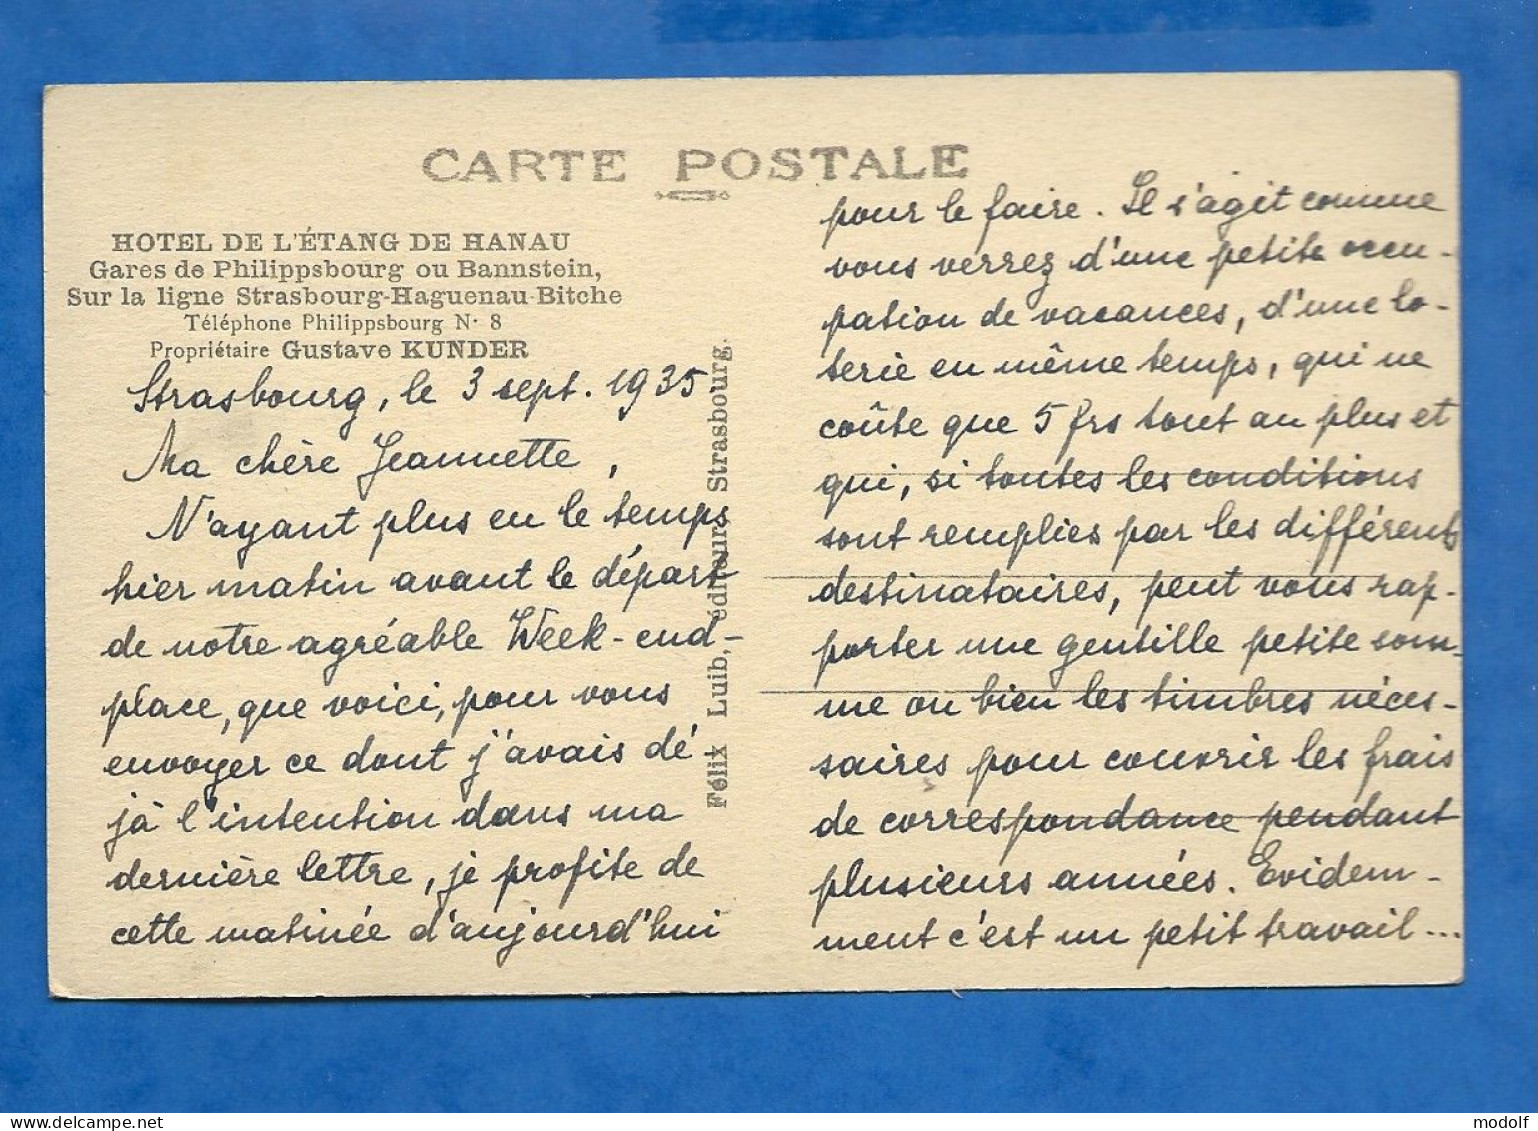 CARTE POSTALE
HOTEL DE L'ÉTANG DE HANAU
Gares de Philippsbourg ou Bannstein,
Sur la ligne Strasbourg-Haguenau-Bitche
Téléphone Philippsbourg N· 8
Propriétaire Gustave KUNDER
Strasbourg, le 3 sept. 1935.
Ma chère Jeannette,
N'ayant plus eu le temps
hier matin avant le départ
de notre agréable Week-end-
place, que voici, pour vous
envoyer ce dont j'avais dé
jà l'intention dans ma
dernière lettre, je profite de
cette matinée d'aujourd'hui
Félix Luib, éditeur, Strasbourg.
pour le faire. Il s'agit comme
vous verrez d'une petite occu-
pation de vacances, d'une lo-
terie en même temps, qui ne
coûte que 5 frs tout au plus et
qui, si toutes les conditions
sont remplies par les différents
destinataires, peut vous rap-
porter une gentille petite som-
me ou bien les timbres néces-
saires pour couvrir les frais
de correspondance pendant
plusieurs années. Evidem-
ment c'est un petit travail...
modolf